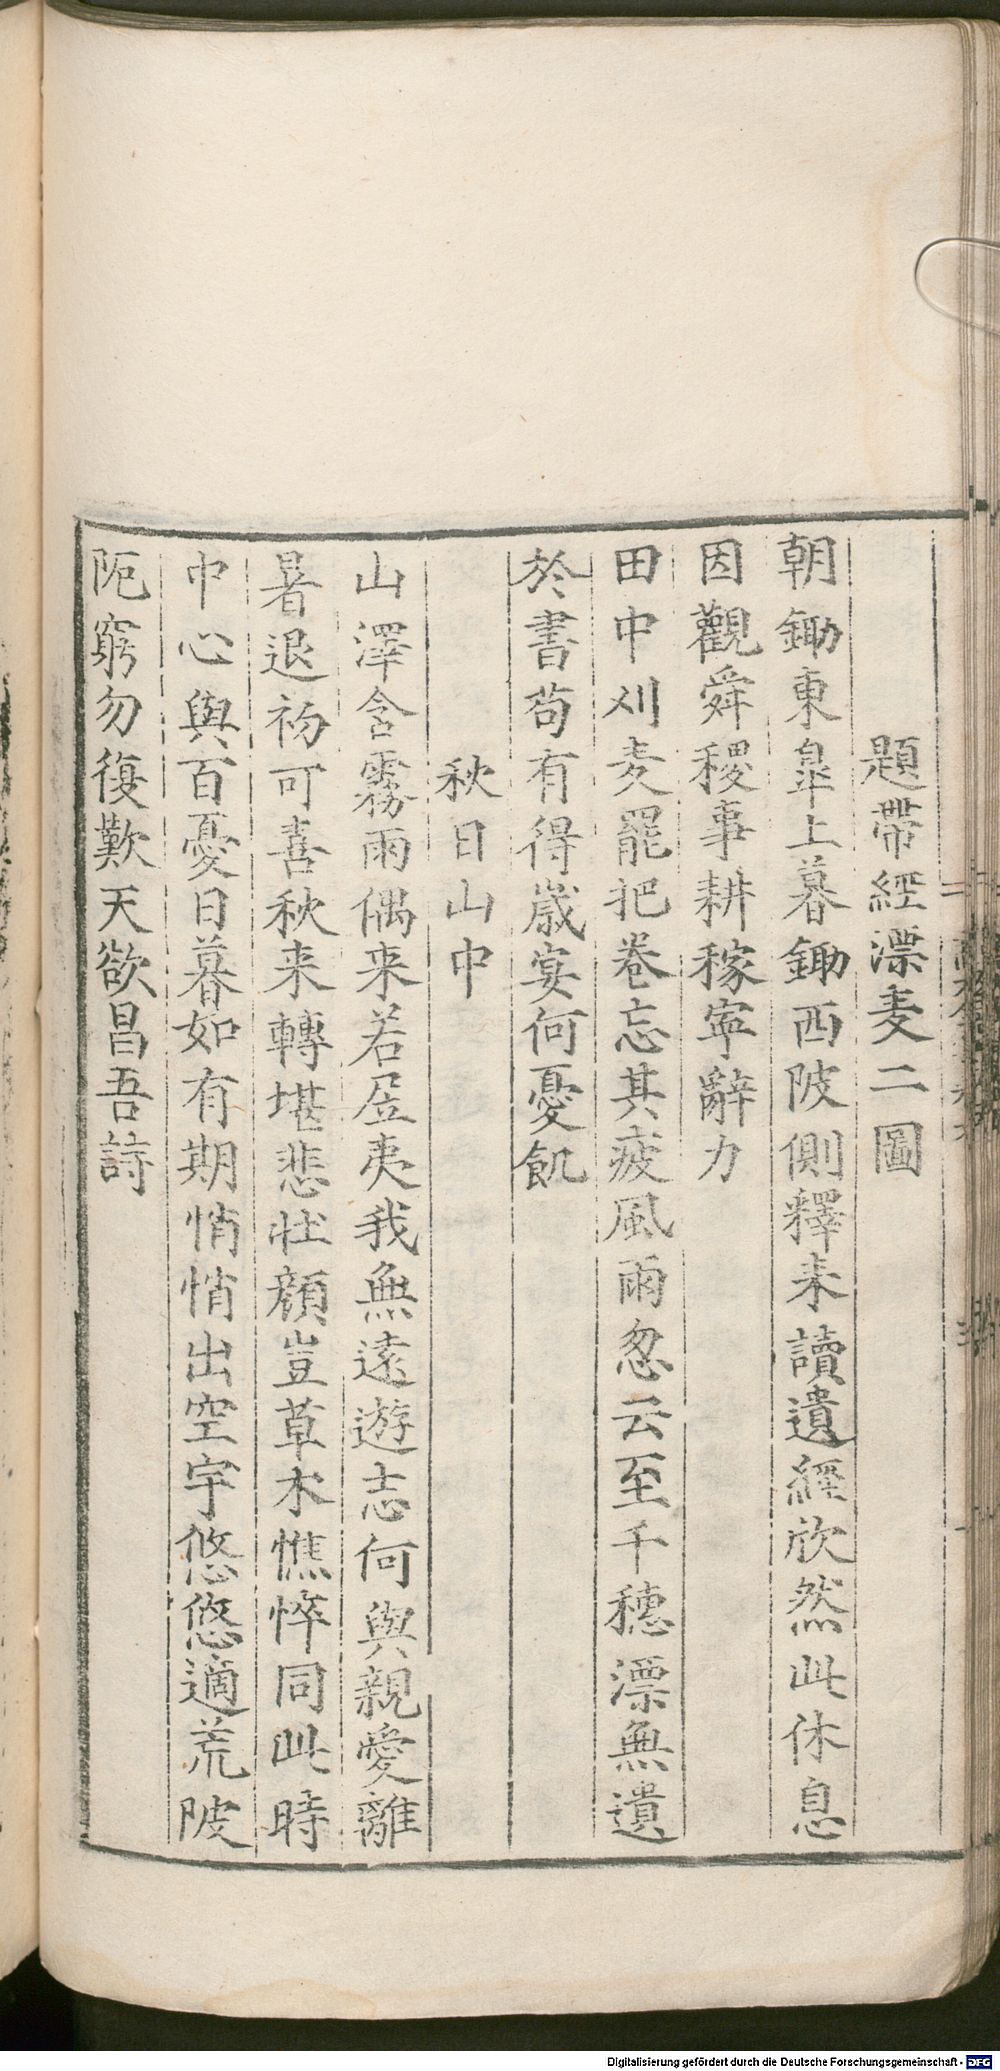 題帶經漂麦二圖
朝鋤東臯上暮鋤西陂側釋耒讀遺經欣然此休息
因觀舜稷事耕稼寜辭力
田中刈麦罷把卷忘其疲風雨忽云至千穗漂無遺
於書苟有得歲宴何憂飢
秋日山中
山澤含霧雨偶来若居夷我無遠遊志何與親愛離
暑退初可喜秋来轉堪悲壮顔豈草木憔悴同此時
中心與百憂日暮如有期悄悄出空宇悠悠適荒陂
阨窮勿復歎天欲昌吾詩
Digitalisierung gefördert durch die Deutsche Forschungsgemeinschaft - DFG